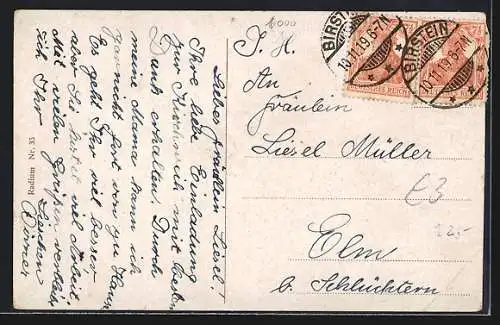 Liebes Fräulein Liesel!
Ihre liebe Einladung
zur Kirchweih mit bestem
Dank erhalten. Durch
meine Mama kann ich
gar nicht fort von zu Hause
Es geht Ihr viel besser
aber Sie viel Arbeit
Mit vielen Grüßen verbleibe
ich Ihr
Radium Nr. 33
6000
J. H.
An
Fräulein
Liesel Müller
Elm
b. Schlüchtern
BIRSTEIN
10.11.19.6-7N.
BIRSTEIN
10.11.19.6-7N.
7½
DEUTSCHES REICH
£3